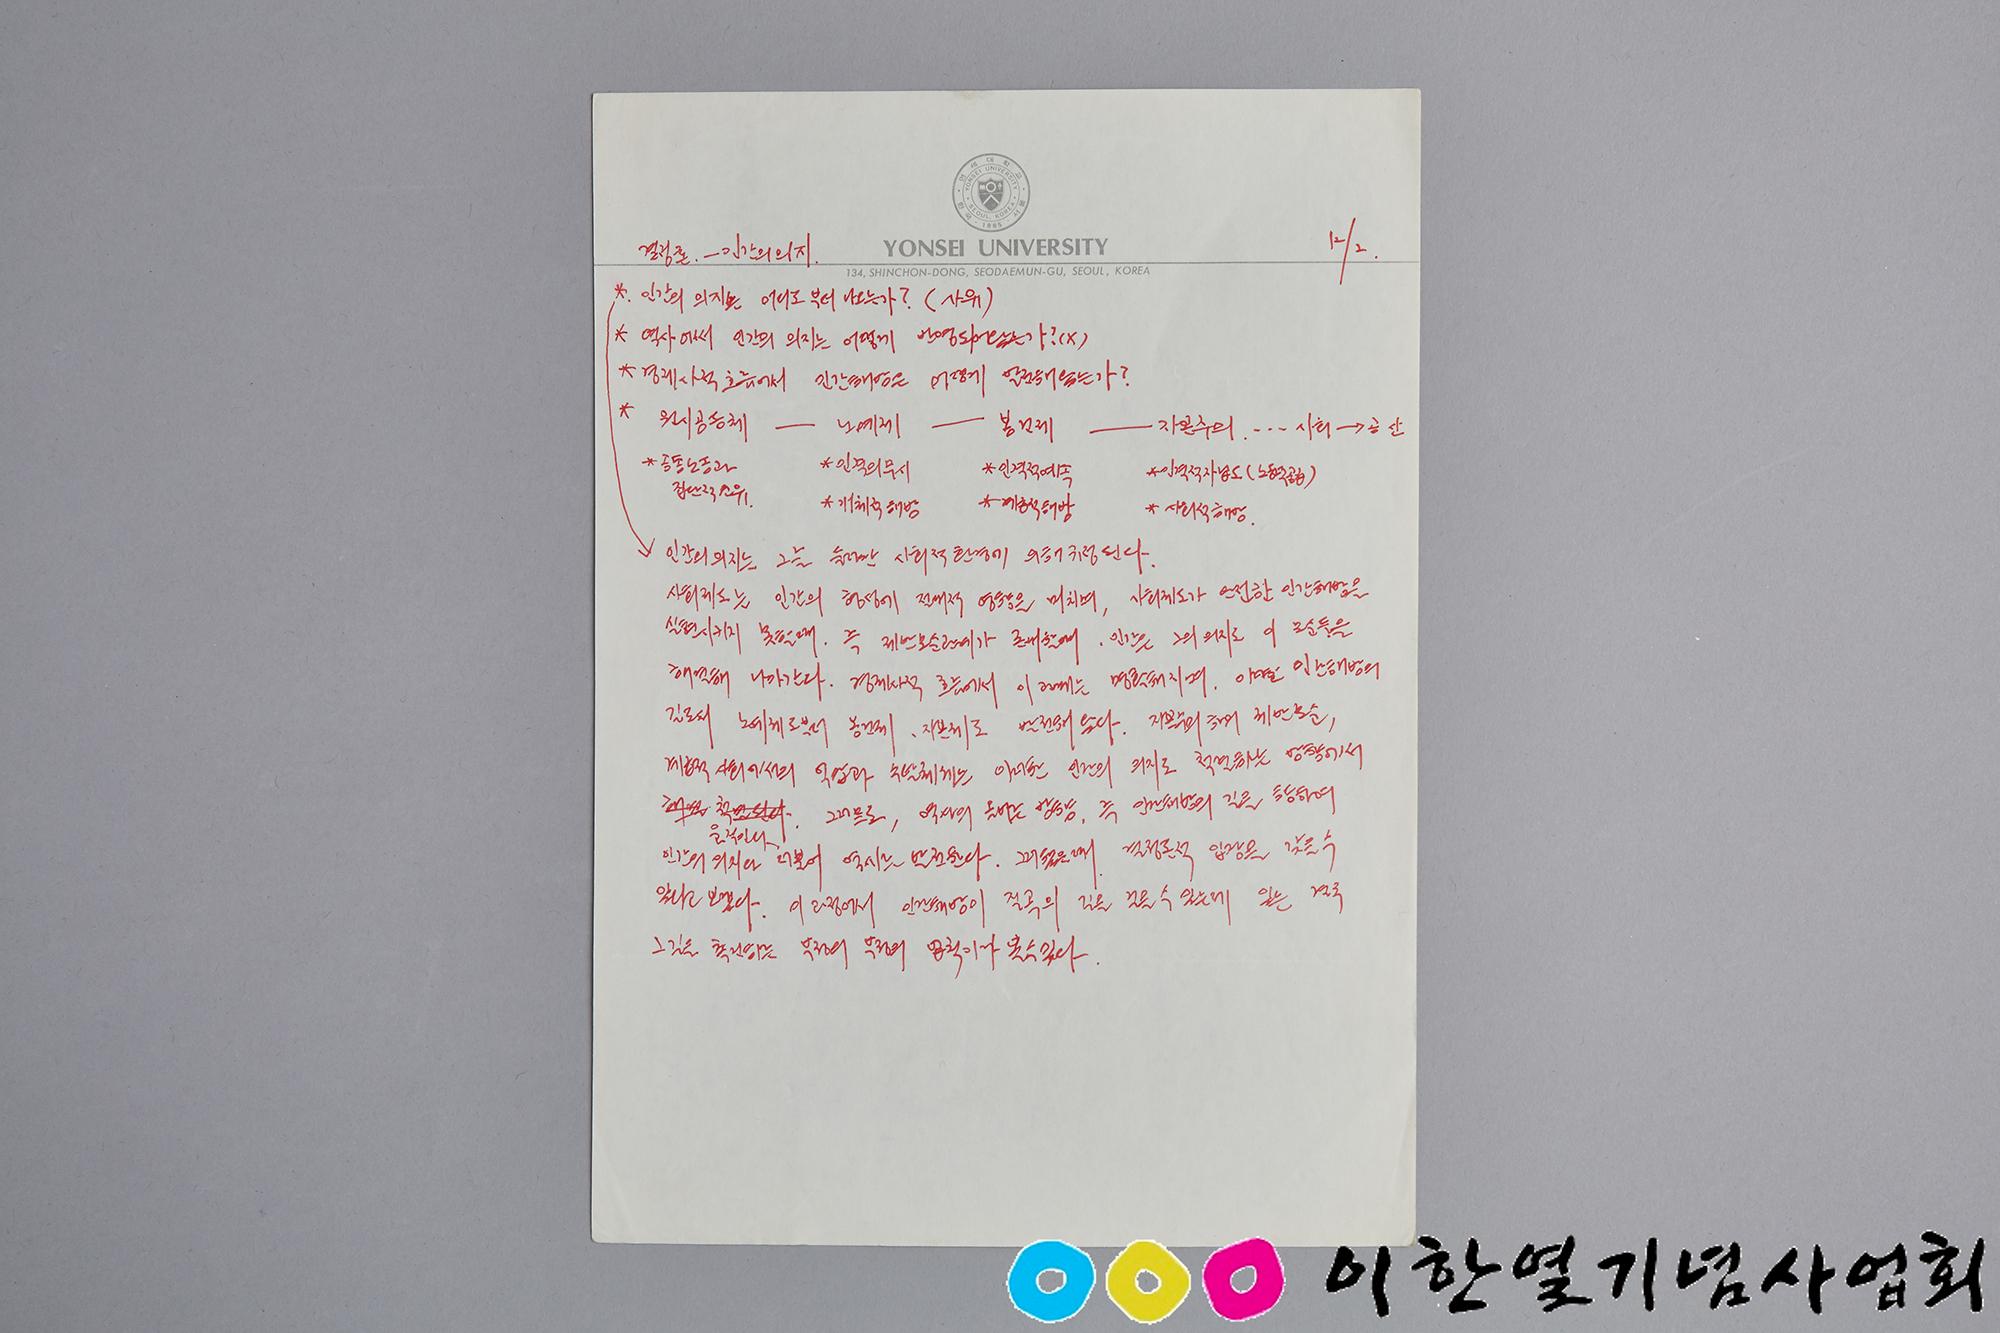 연세대학교
YONSEI UNIVERSITY
SEOUL, KOREA
1885
YONSEI UNIVERSITY
134, SHINCHON-DONG, SEODAEMUN-GU, SEOUL, KOREA
결정론. — 인간의 의지.
12/2.
*. 인간의 의지는 어디로부터 나오는가? (사유)
* 역사에서 인간의 의지는 어떻게 반영되어 왔는가? (X)
* 경제사적 흐름에서 인간해방은 어떻게 발전해 왔는가?
* 원시공동체 — 노예제 — 봉건제 — 자본주의 . --- 사회 → 공산
* 공동노동과 * 인격의 무시 * 인격적 예속 * 인격적
집단적 소유. * 개체적 해방 * 계층적 해방 * 사회적 해방.
인간의 의지는 그를 둘러싼 사회적 환경에 의해 규정된다.
사회제도는 인간의 형성에 전체적 영향을 미치며, 사회제도가 완전한 인간해방을
실현시키지 못할때. 즉 제반모순관계가 존재할때. 인간은 그의 의지로 이 모순들을
해결해 나아간다. 경제사적 흐름에서 이 관계는 명확해지며. 인간해방의
길로서 노예제로부터 봉건제, 자본제로 발전해 왔다. 자본주의하의 제반모순,
계층적 사회에서의 억압과 수탈체제는 이러한 인간의 의지로 척결하는 방향에서
움직인다.
그러므로, 역사의 올바른 방향, 즉 인간해방의 길을 통하여
인간의 의지와 더불어 역사는 발전한다. 결정론적 입장은 같을 수
없다고 보겠다. 이 과정에서 인간해방이 질곡의 길을 걸을 수 있는데 있는 결국
그 길을 촉진하는 부정의 부정의 법칙이라 볼 수 있다.
이한열기념사업회